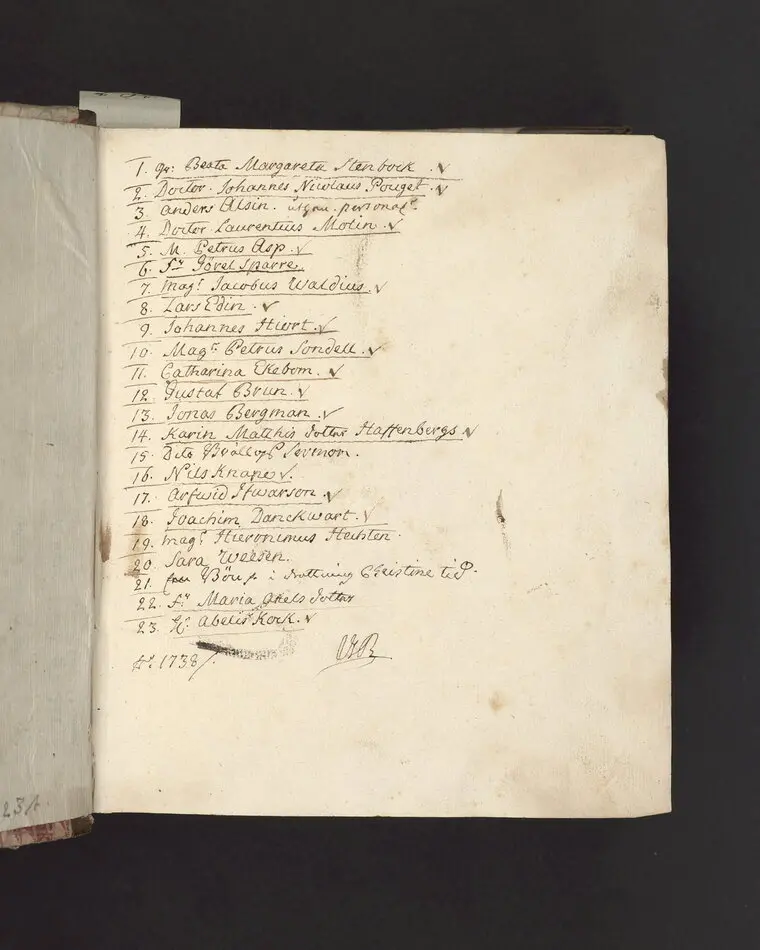 1. Gr: Beata Margareta Stenbock. √
2. Doctor Johannes Nicolaus Pouget. √
3. Anders Alsin. utgau. personal.
4. Doctor Laurentius Molin. √
5. M. Petrus Asp. √
6. Fr Görel Sparre.
7. Magr Jacobus Waldius. √
8. Lars Edin. √
9. Johannes Hiort. √
10. Magr Petrus Sondell. √
11. Catharina Ekebom. √
12. Gustaf Brun. √
13. Jonas Bergman. √
14. Karin Matthis dotter Haffenbergs √
15. Dito Bröllops Sermon.
16. Nils Knape √.
17. Arfwid Ifwarson. √
18. Joachim Danckwart. √
19. Magr Hieronimus Hechten.
20. Sara
21. i drottning Christine tid.
22. Fr Maria Axels dotter
23. Hr Abelis Kock. √
Ao. 1738
23